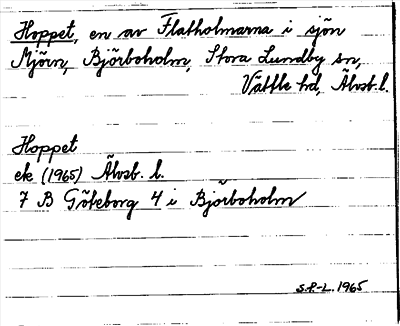 Hoppet, en av Flatholmarna i sjön
Mjörn, Björboholm, Stora Lundby sn,
Vättle hd, Älvsb. l.
Hoppet
ek (1965) Älvsb. l.
7 B Göteborg 4 i Björboholm
S.P.-L. 1965